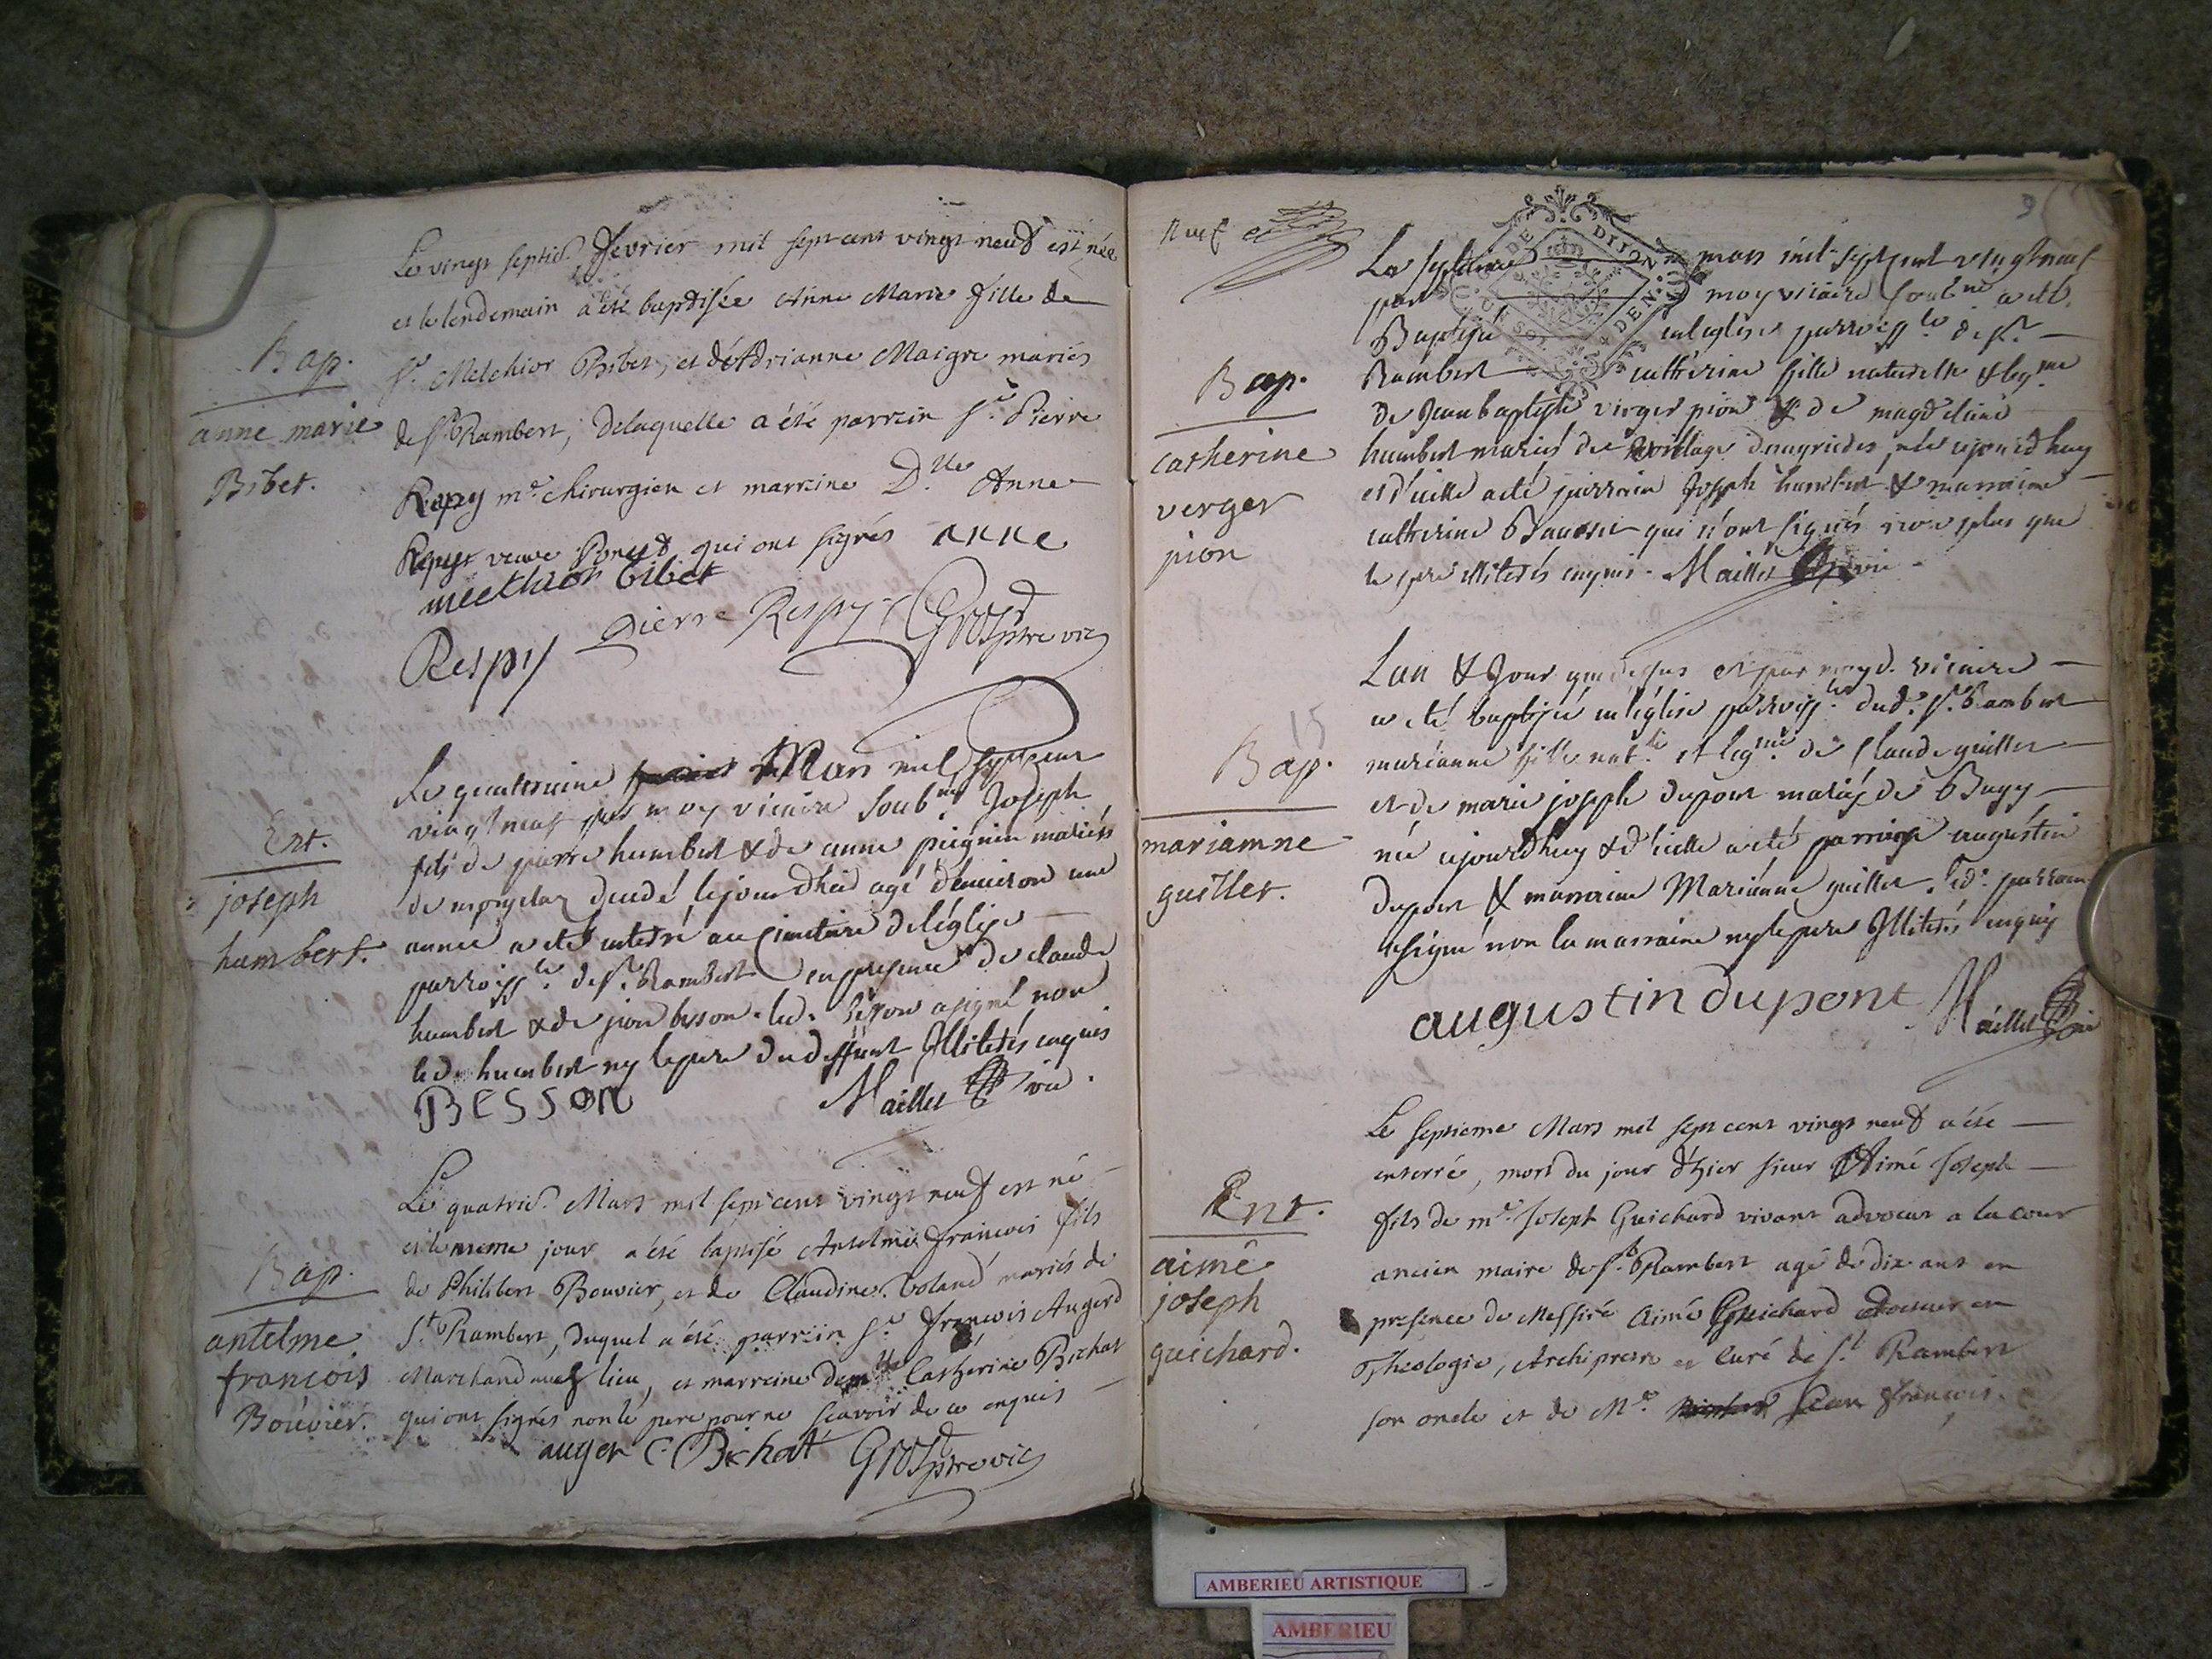 Le vingt septie. fevrier mil sept cent vingt neuf est née
et le lendemain a été baptisée Anne Marie fille de
Bap.
Sr. Melchior Bibet, et d'Adrianne Maigre mariés
anne marie
de St. Rambert, delaquelle a été parrein Sr. Pierre
Bibet.
Respy me. chirurgien et marreine Dlle Anne
Respy veuve qui ont signés anne
melchior bibet
Respy pierre Respy Gros ptre vic
Le quatrieme Mars mil sept cent
vingt neuf par moy vicaire soubné Joseph
Ent.
fils de pierre humbert & de anne mariés
joseph
de decedé le jour dhier agé denviron une
humbert.
année a eté enterré au cimetiere de léglise
parroissle. de St. Rambert en presence de claude
humbert & de besson. led. besson a signé non
led. humbert ny le pere du deffunt Illiterés enquis
BESSON Maillet vic.
Le quatrie. Mars mil sept cent vingt neuf est né
et le meme jour a été baptisé Antelme francois fils
Bap.
de Philibert Bouvier, et de Claudine mariés de
antelme
St. Rambert, duquel a été parrein Sr. francois Augerd
francois
Marchand lieu, et marreine demlle Catherine Bichat
Bouvier.
qui ont signés non le pere pour ne scavoir de ce enquis
auger C Bichat Gros ptre vic
neuf
9
DE DIJON
Le septieme mars mil sept cent vingt neuf
par moy vicaire soubné a eté
Baptisé en leglise parroissle de St.
Bap.
Rambert catherine fille naturelle & legme
de Jean baptiste verger pion & de magdelaine
catherine
humbert mariés née ajourdhuy
verger
et d'icelle a eté parrain Joseph humbert & marraine
pion
catherine qui n'ont signés non plus que
le pere illiterés enquis. Maillet vic.
Lan & Jour que dessus et par moyd. vicaire
a eté baptisée en léglise parroissle. dud. St. Rambert
15
Bap.
marianne fille natle et legme de Claude guillet
et de marie joseph dupont mariés de Bugy
mariamne
née ajourdhuy & d'icelle a eté parrain augustin
guillet.
dupont & marraine Marianne guillet. led. parrain
a signé non la marraine ny le pere Illiterés enquis
augustin dupont Maillet vic
Le septieme Mars mil sept cent vingt neuf a été
enterré, mort du jour d'hier sieur Aimé Joseph
Ent.
fils de me. Joseph Guichard vivant advocat a la cour
aimé
ancien maire de St. Rambert agé de dix ans en
joseph
presence de Messire Aimé Guichard docteur en
guichard.
Theologie, Archiprestre et Curé de St. Rambert
son oncle et de Me. Jean francois
AMBERIEU ARTISTIQUE
AMBERIEU